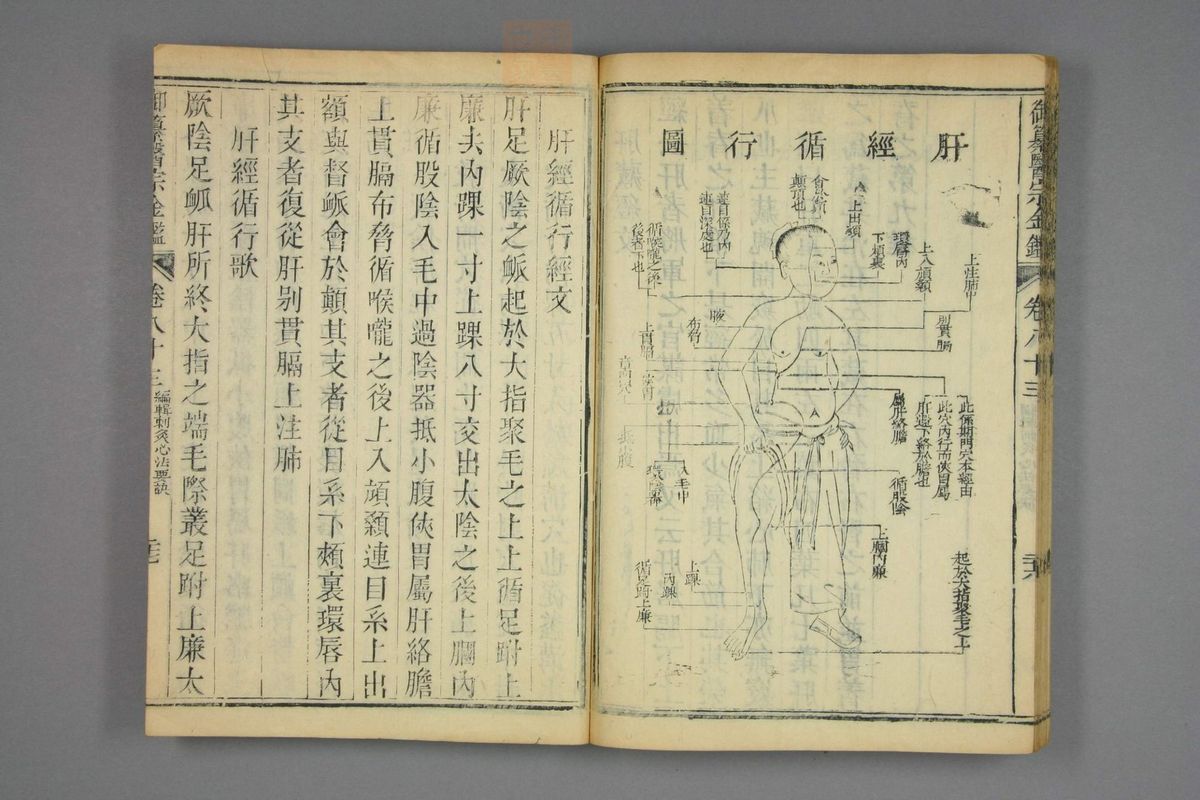 御纂醫宗金鑑
卷八十三
肝經循行圖
會於督
顛頂也
上出額
環唇內
下頰裏
上入頏顙
上注肺中
別貫膈
連目深處也
循喉嚨之後
腋
布脅
上貫膈
章門穴
屬肝絡膽
此係期門穴本經由
此穴內行而俠胃屬
肝遂下絡於膽也
循股陰
入毛中
上膕內廉
上踝
內踝
循足跗上廉
起於大指聚毛之上
肝經循行經文
肝足厥陰之脈起於大指聚毛之上上循足跗上
廉去內踝一寸上踝八寸交出太陰之後上膕內
廉循股陰入毛中過陰器抵小腹俠胃屬肝絡膽
上貫膈布脅循喉嚨之後上入頏顙連目系上出
額與督脈會於顛其支者從目系下頰裏環唇內
其支者復從肝别貫膈上注肺
肝經循行歌
厥陰足脈肝所終大指之端毛際叢足跗上廉太
御纂醫宗金鑑
卷八十三
編輯刺灸心法要訣